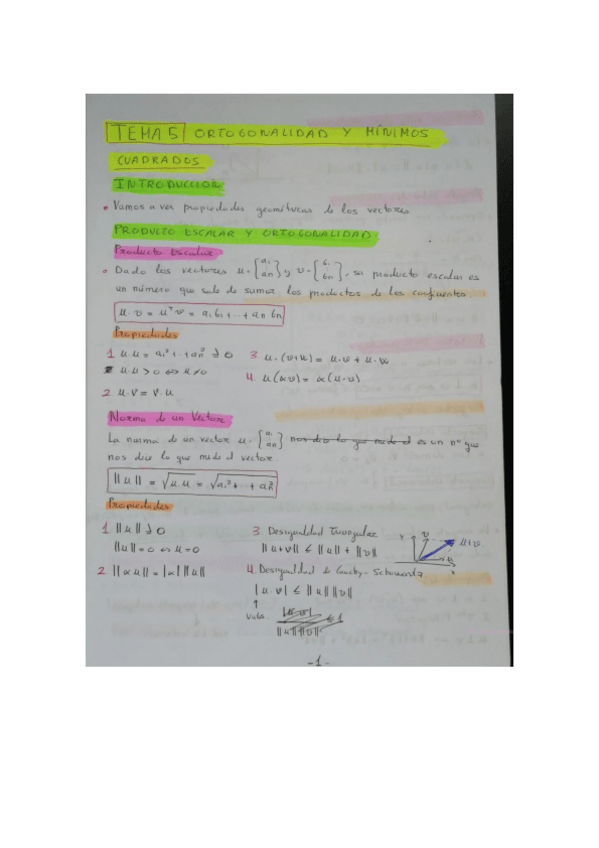 TEMA 5 ORTOGONALIDAD Y MÍNIMOS
CUADRADOS
INTRODUCCIÓN
• Vamos a ver propiedades geométricas de los vectores
PRODUCTO ESCALAR Y ORTOGONALIDAD
Producto Escalar
• Dado los vectores u = [a₁ an] y v = [b₁ bn], su producto escalar es
un número que sale de sumar los productos de los coeficientes.
u·v = uᵀ·v = a₁b₁+...+an bn
Propiedades
1 u·u = a₁²+...+an² ≥ 0
u·u > 0 ⇔ u ≠ 0
2 u·v = v·u
3 u·(v+w) = u·v + u·w
4. u(αv) = α(u·v)
Norma de un Vector
La norma de un vector u = [a₁ an] nos dice lo que mide el es un nº que
nos dice lo que mide el vector.
||u|| = √u·u = √a₁²+...+an²
Propiedades
1 ||u|| ≥ 0
||u|| = 0 ⇔ u = 0
2 ||αu|| = |α| ||u||
3. Desigualdad Triangular
||u+v|| ≤ ||u|| + ||v||
Y v u+v
u x
4. Desigualdad de Cauchy-Schwarz
|u·v| ≤ ||u|| ||v||
↑
Valor
|u·v| ≤ 1
||u|| ||v||
-1-